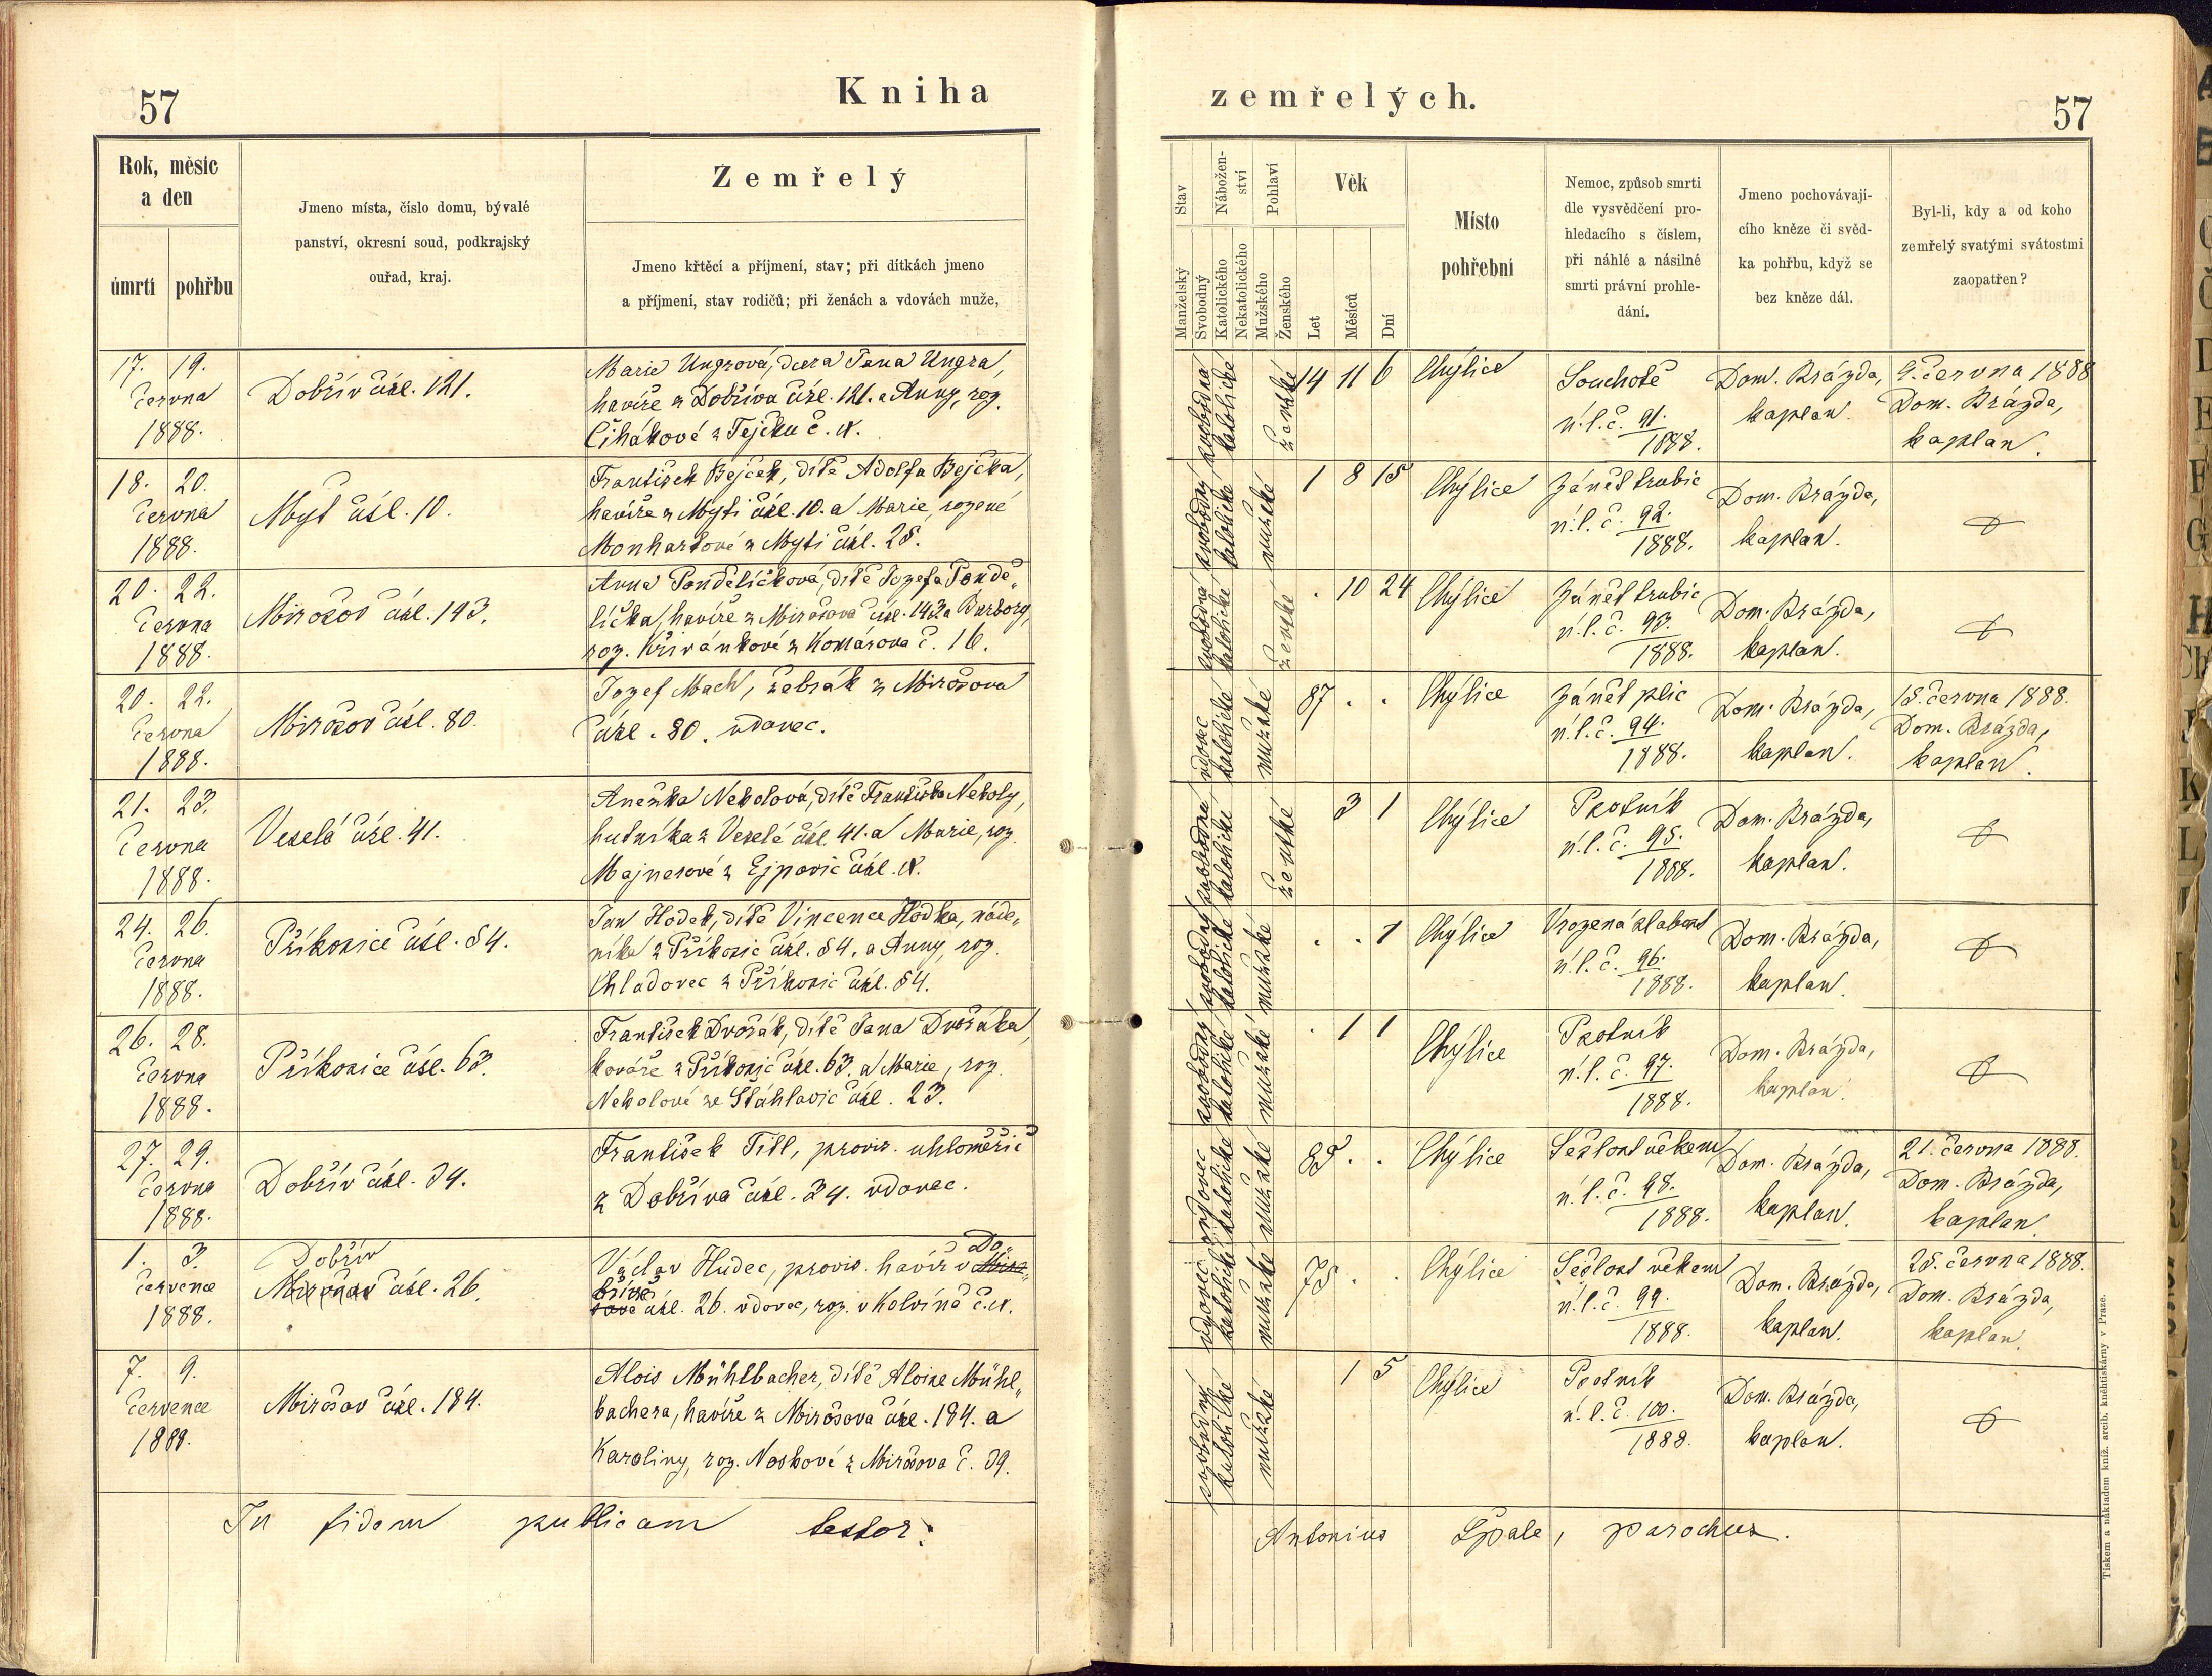 57
Kniha
Rok, měsíc
a den
úmrtí
pohřbu
Jmeno místa, číslo domu, bývalé
panství, okresní soud, podkrajský
ouřad, kraj.
Zemřelý
Jmeno křtěcí a příjmení, stav; při dítkách jmeno
a příjmení, stav rodičů; při ženách a vdovách muže,
17. 19.
června
1888.
Dobřív čísl. 121.
Marie Ungrová, dcera Jana Ungra,
havíře z Dobříva čísl. 121. a Anny, roz.
Čihákové z Tejčku č. x.
18. 20.
června
1888.
Mýt čísl. 10.
František Bejček, dítě Adolfa Bejčka,
havíře z Mýti čísl. 10. a Marie, rozené
Monhartové z Mýti čísl. 25.
20. 22.
června
1888.
Mirošov čísl. 143.
Anna Pondělíčková, dítě Jozefa Pondě„
líčka, havíře z Mirošova čísl. 143. a Barbory,
roz. Křivánkové z Komárova č. 16.
20. 22.
června
1888.
Mirošov čísl. 80.
Jozef Mach, žebrák z Mirošova
čísl. 80. vdovec.
21. 23.
června
1888.
Veselá čísl. 41.
Anežka Nekolová, dítě Františka Nekoly,
hutníka z Veselé čísl. 41. a Marie, roz.
Majnerové z Ejpovic čísl. x.
24. 26.
června
1888.
Příkosice čísl. 54.
Jan Hodek, dítě Vincence Hodka, náde„
níka z Příkosic čísl. 54. a Anny, roz.
Chladovec z Příkosic čísl. 54.
26. 28.
června
1888.
Příkosice čísl. 63.
František Dvořák, dítě Jana Dvořáka,
kováře z Příkosic čísl. 63. a Marie, roz.
Nekolové ze Šťáhlavic čísl. 23.
27. 29.
června
1888.
Dobřív čísl. 34.
František Titl, provis. uhloměřič
z Dobříva čísl. 34. vdovec.
1. 3.
července
1888.
Dobřív
Mirošov čísl. 26.
Do„
Václav Hudec, provis. havíř v Miro„
břívě
šově čísl. 26. vdovec, roz. v Kolvíně č. x.
7. 9.
července
1888.
Mirošov čísl. 184.
Alois Mühlbacher, dítě Aloise Mühl„
bachera, havíře z Mirošova čísl. 184. a
Karoliny, roz. Noskové z Mirošova č. 39.
In fidem publicam testor:
zemřelých.
57
Stav
Manželský
Svobodný
Nábožen-
ství
Katolického
Nekatolického
Pohlaví
Mužského
Ženského
Věk
Let
Měsíců
Dní
Místo
pohřební
Nemoc, způsob smrti
dle vysvědčení pro-
hledacího s číslem,
při náhlé a násilné
smrti právní prohle-
dání.
Jmeno pochovávají-
cího kněze či svěd-
ka pohřbu, když se
bez kněze dál.
Byl-li, kdy a od koho
zemřelý svatými svátostmi
zaopatřen?
svobodná
katolické
ženské
14 11 6
Chýlice
Souchotě
n. l. č. 91.
1888.
Dom. Brázda,
kaplan.
9. června 1888
Dom. Brázda,
kaplan.
svobodný
katolické
mužské
1 8 15
Chýlice
Zánět trubic
n. l. č. 92.
1888.
Dom. Brázda,
kaplan.
svobodná
katolické
ženské
. 10 24
Chýlice
Zánět trubic
n. l. č. 93.
1888.
Dom. Brázda,
kaplan.
vdovec
katolické
mužské
87 . .
Chýlice
Zánět plic
n. l. č. 94.
1888.
Dom. Brázda,
kaplan.
18. června 1888.
Dom. Brázda,
kaplan.
svobodná
katolické
ženské
3 1
Chýlice
Psotník
n. l. č. 95.
1888.
Dom. Brázda,
kaplan.
svobodný
katolické
mužské
. . 1
Chýlice
Vrozená slabost
n. l. č. 96.
1888.
Dom. Brázda,
kaplan.
svobodný
katolické
mužské
. 1 1
Chýlice
Psotník
n. l. č. 97.
1888.
Dom. Brázda,
kaplan.
vdovec
katolické
mužské
85 . .
Chýlice
Sešlost věkem
n. l. č. 98.
1888.
Dom. Brázda,
kaplan.
21. června 1888.
Dom. Brázda,
kaplan
vdovec
katolické
mužské
75 . .
Chýlice
Sešlost věkem
n. l. č. 99.
1888.
Dom. Brázda,
kaplan.
25. června 1888.
Dom. Brázda,
kaplan.
svobodný
katolické
mužské
1 5
Chýlice
Psotník
n. l. č. 100.
1888.
Dom. Brázda,
kaplan.
Antonius Špale, parochus.
Tiskem a nákladem kníž. arcib. knihtiskárny v Praze.